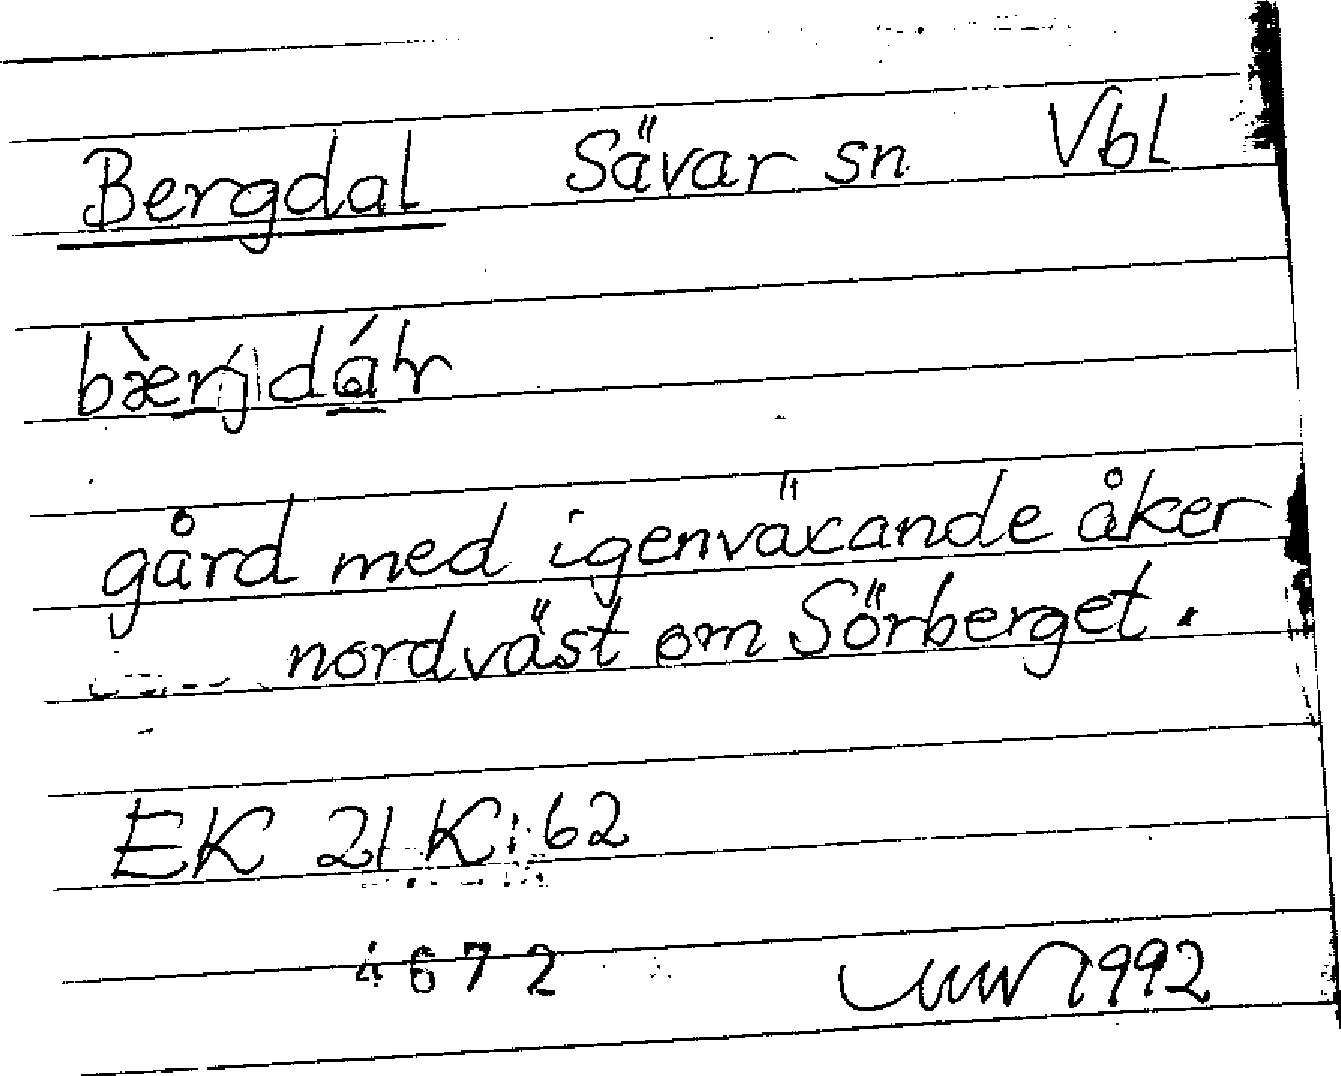 Bergdal Sävar sn Vbl
gård med igenväxande åker
nordväst om Sörberget.
EK 21 K: 62
4672 1992